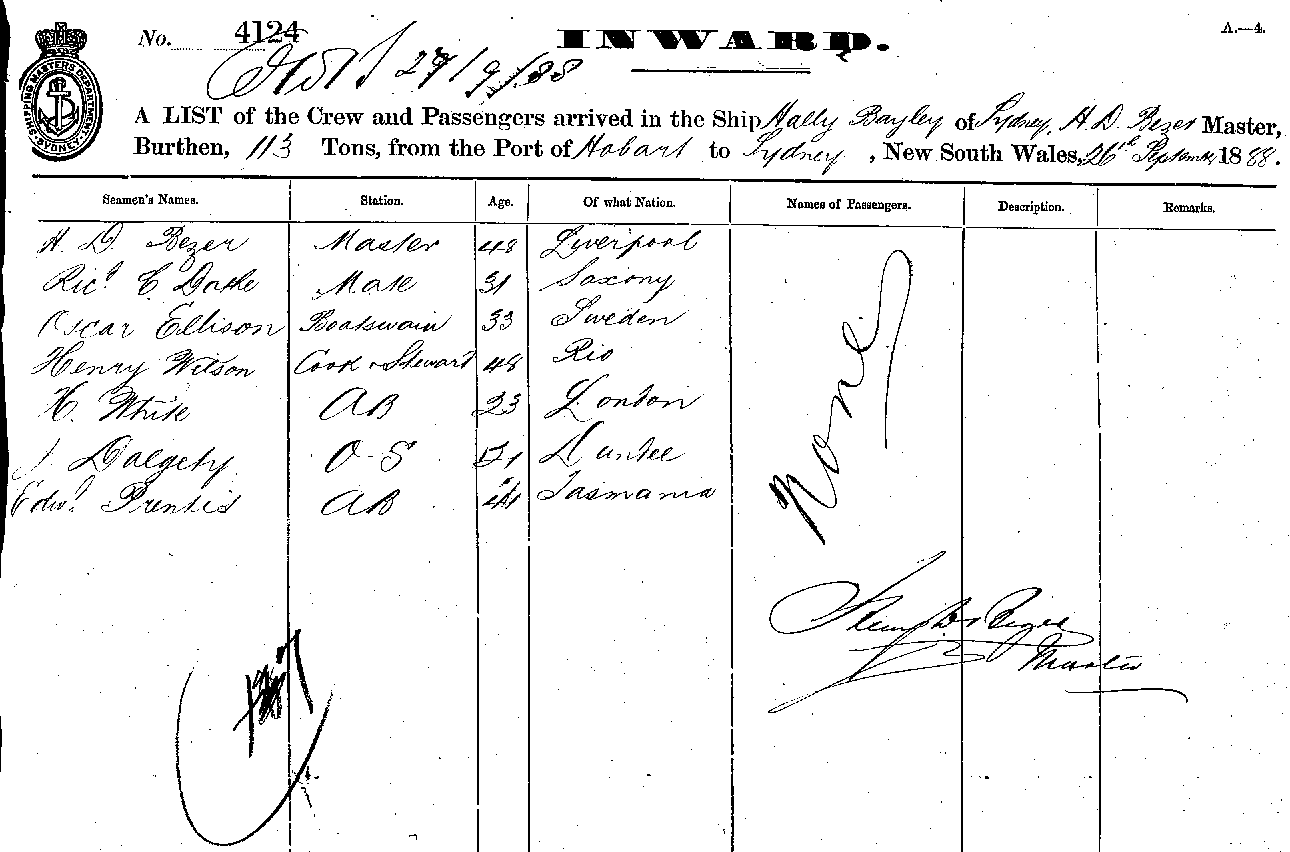 No. 4124 INWARD. A.—4.
27/9/88
SHIPPING MASTERS DEPARTMENT SYDNEY
A LIST of the Crew and Passengers arrived in the Ship Hally Bayley of Sydney, H. D. Bezer Master,
Burthen, 113 Tons, from the Port of Hobart to Sydney, New South Wales, 26th September 1888.
Seamen's Names. Station. Age. Of what Nation. Names of Passengers. Description. Remarks.
H. D. Bezer Master 48 Liverpool
Ricd. C. Mate 31 Saxony
Oscar Ellison Boatswain 33 Sweden
Henry Wilson Cook & Steward 48 Rio
H. White AB 23 London
J. Dalgety O-S Dundee
Edwd. Prentis AB Tasmania
None
Master